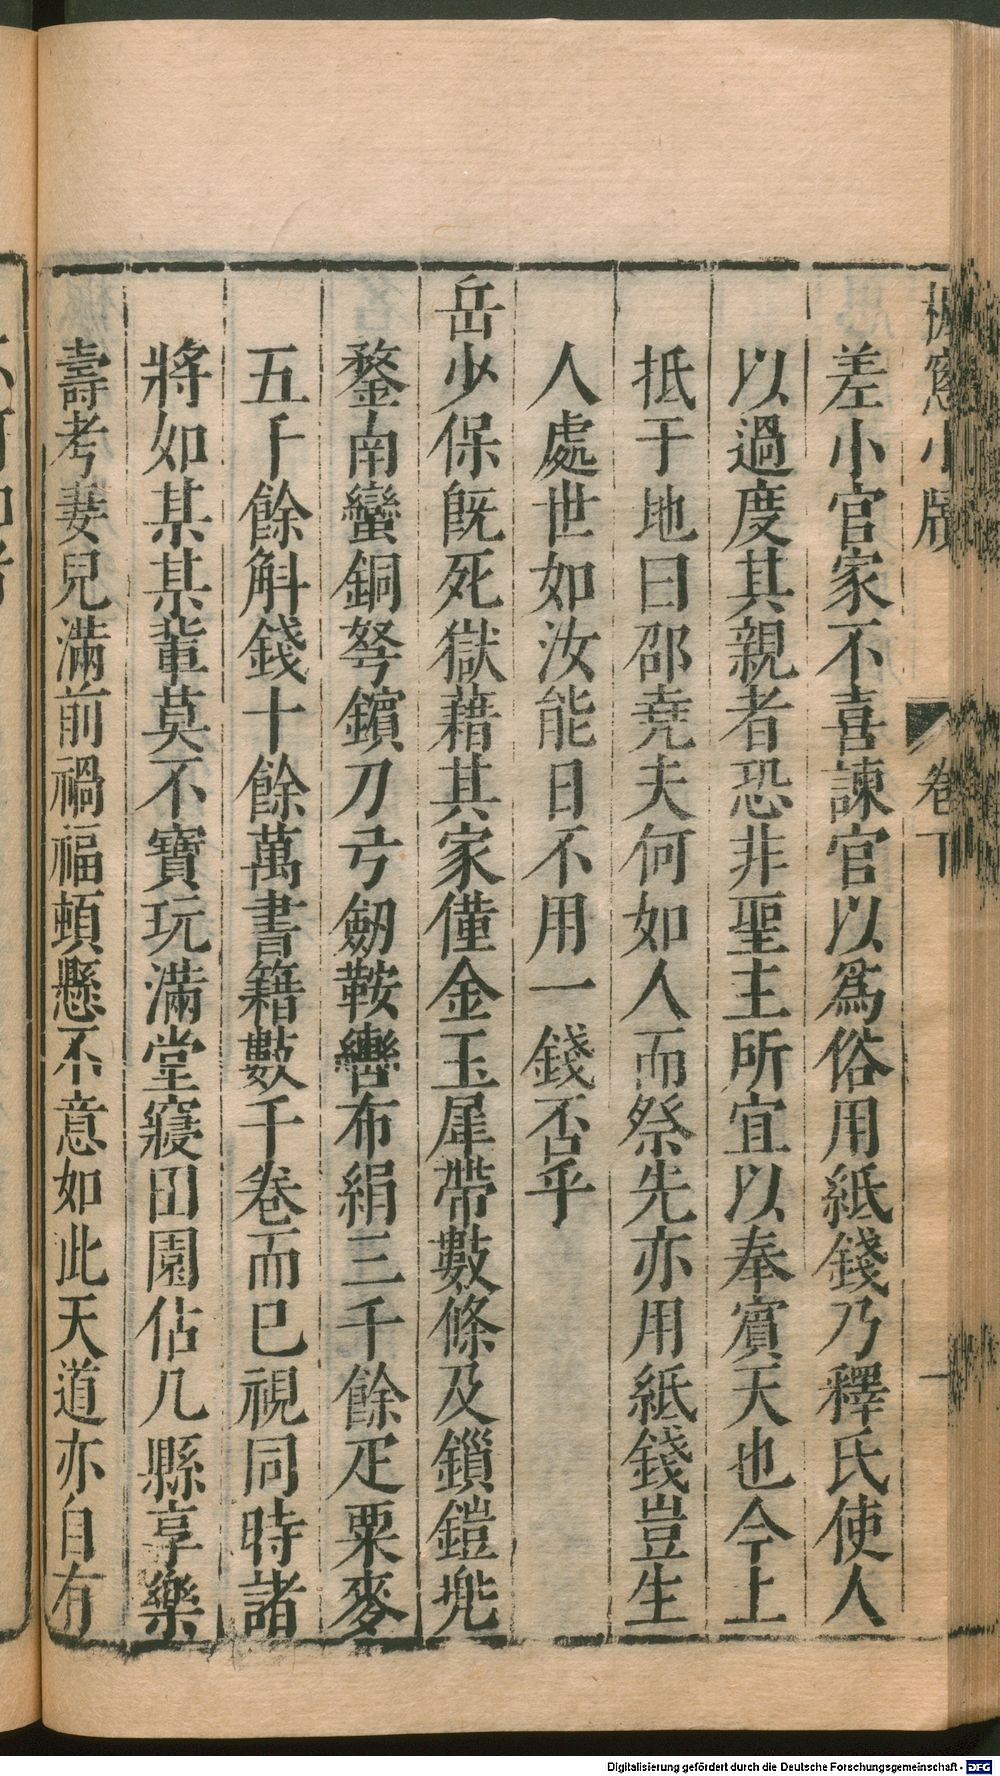 楓窓小牘 卷下 一
差小官家不喜諫官以爲俗用紙錢乃釋氏使人
以過度其親者恐非聖主所宜以奉賓天也今上
抵于地曰邵堯夫何如人而祭先亦用紙錢豈生
人處世如汝能日不用一錢否乎
岳少保旣死獄藉其家僅金玉犀帶數條及鎻鎧兠
鍪南蠻銅弩鑌刀弓劒鞍轡布絹三千餘疋粟麥
五千餘斛錢十餘萬書籍數千卷而已視同時諸
將如某某輩莫不寶玩滿堂寢田園佔几縣享樂
壽考妻兒滿前禍福頓懸不意如此天道亦自有
Digitalisierung gefördert durch die Deutsche Forschungsgemeinschaft - DFG